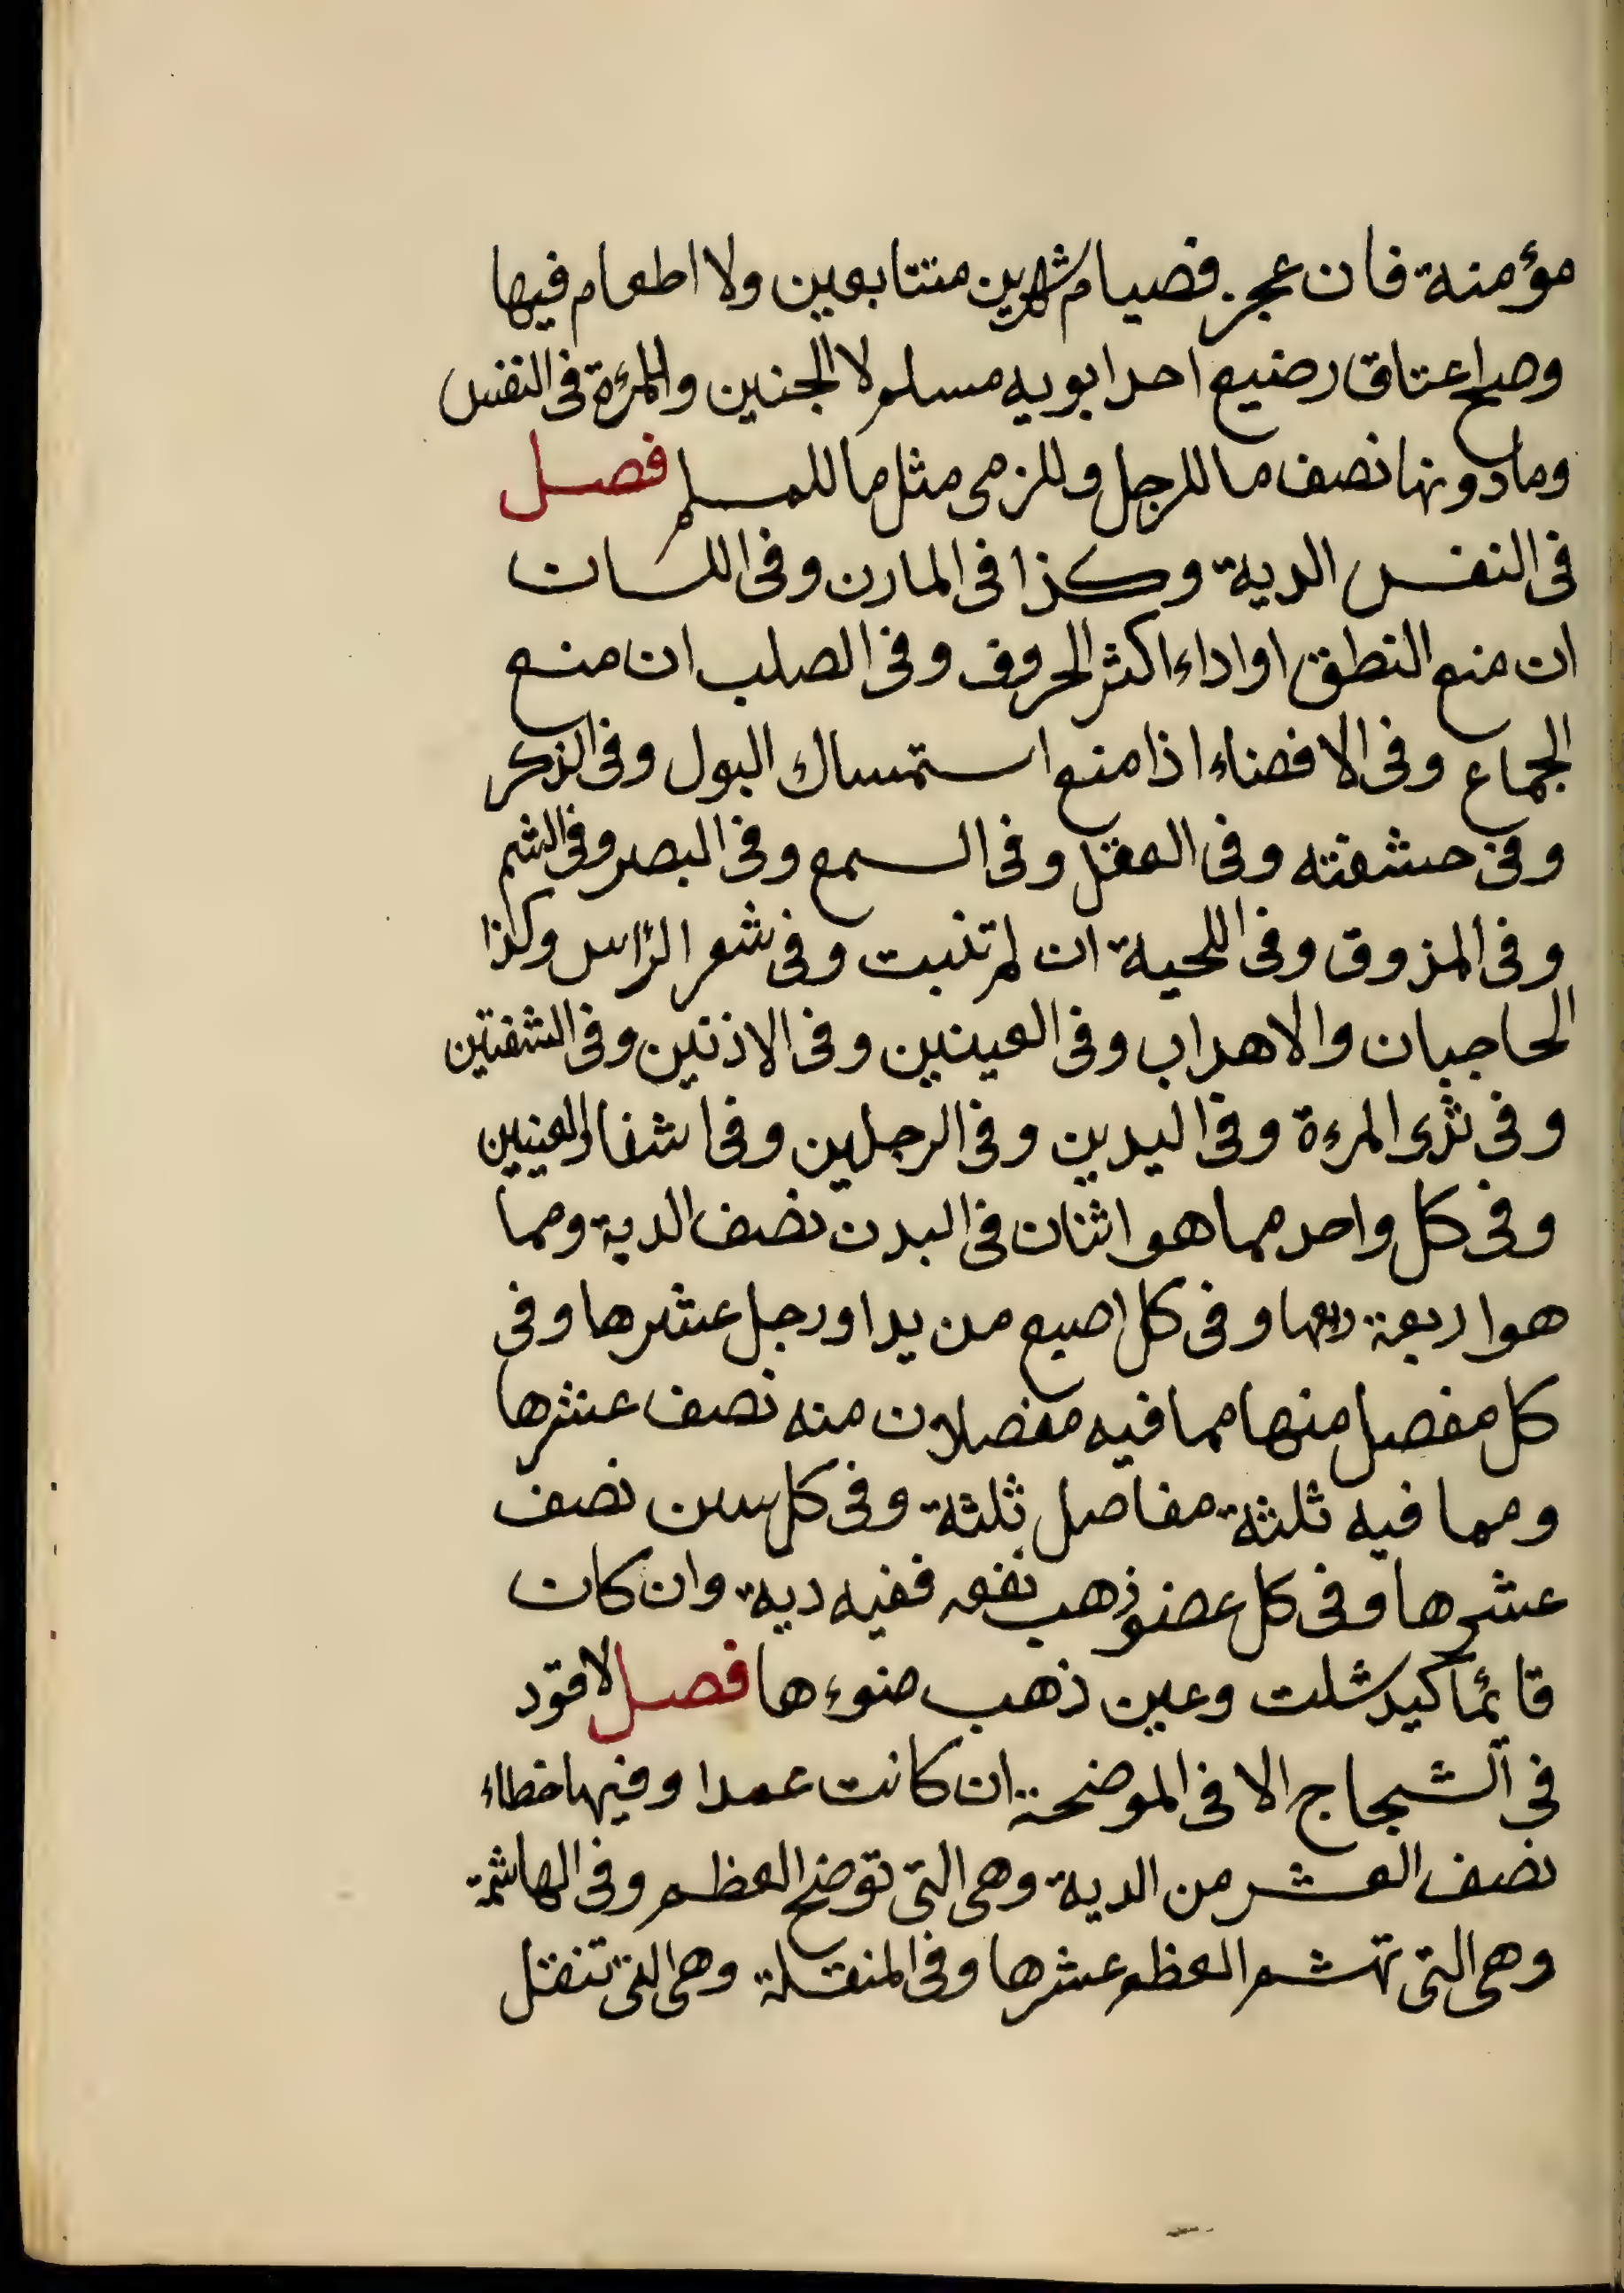 مؤمنة فان عجز فصيام شهرين متتابعين ولا اطعام فيها
وصح اعتاق رضيع احد ابويه مسلم لا الجنين وللمرءة فى النفس
وما دونها نصف ما للرجل وللذمى مثل ما للمسلم فصل
فى النفس الدية وكذا فى المارن وفى اللسان
ان منع النطق او اداء اكثر الحروف وفى الصلب ان منع
الجماع وفى الافضاء اذا منع استمساك البول وفى الذكر
وفى حشفته وفى العقل وفى السمع وفى البصر وفى الشم
وفى المذوق وفى اللحية ان لم تنبت وفى شعر الرّأس وكذا
الحاجبان والاهداب وفى العينين وفى الاذنين وفى الشفتين
وفى ثدى المرءة وفى اليدين وفى الرجلين وفى اشفار العينين
وفى كل واحد مما هو اثنان فى البدن نصف الدية ومما
هو اربعة ربعها وفى كل اصبع من يد او رجل عشرها وفى
كل مفصل منها مما فيه مفصلان منه نصف عشرها
ومما فيه ثلثة مفاصل ثلثة وفى كل سن نصف
عشرها وفى كل عضو ذهب نفعه ففيه دية وان كان
قائما كيد شلت وعين ذهب ضوءها فصل لا قود
فى الشجاج الا فى الموضحة ان كانت عمدا وفيها خطاء
نصف العشر من الدية وهى التى توضح العظم وفى الهاشمة
وهى التى تهشم العظم عشرها وفى المنقلة وهى التى تنقل